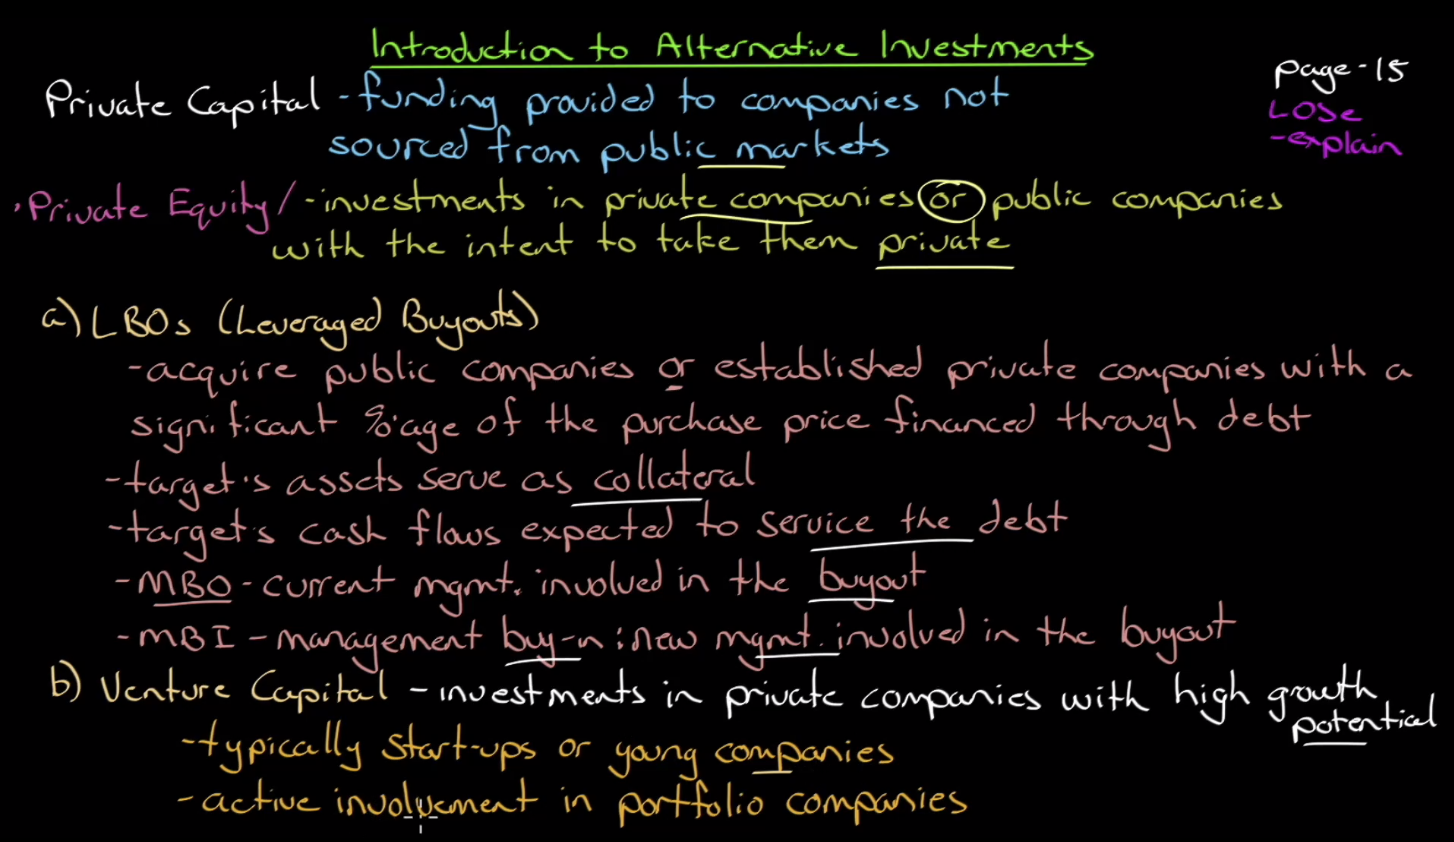 Introduction to Alternative Investments
page-15
LOSe
-explain
Private Capital - funding provided to companies not
sourced from public markets
· Private Equity / - investments in private companies or public companies
with the intent to take them private
a) LBOs (Leveraged Buyouts)
- acquire public companies or established private companies with a
significant %'age of the purchase price financed through debt
- target's assets serve as collateral
- target's cash flows expected to service the debt
- MBO - current mgmt. involved in the buyout
- MBI - management buy-in : new mgmt. involved in the buyout
b) Venture Capital - investments in private companies with high growth
potential
- typically start-ups or young companies
- active involvement in portfolio companies